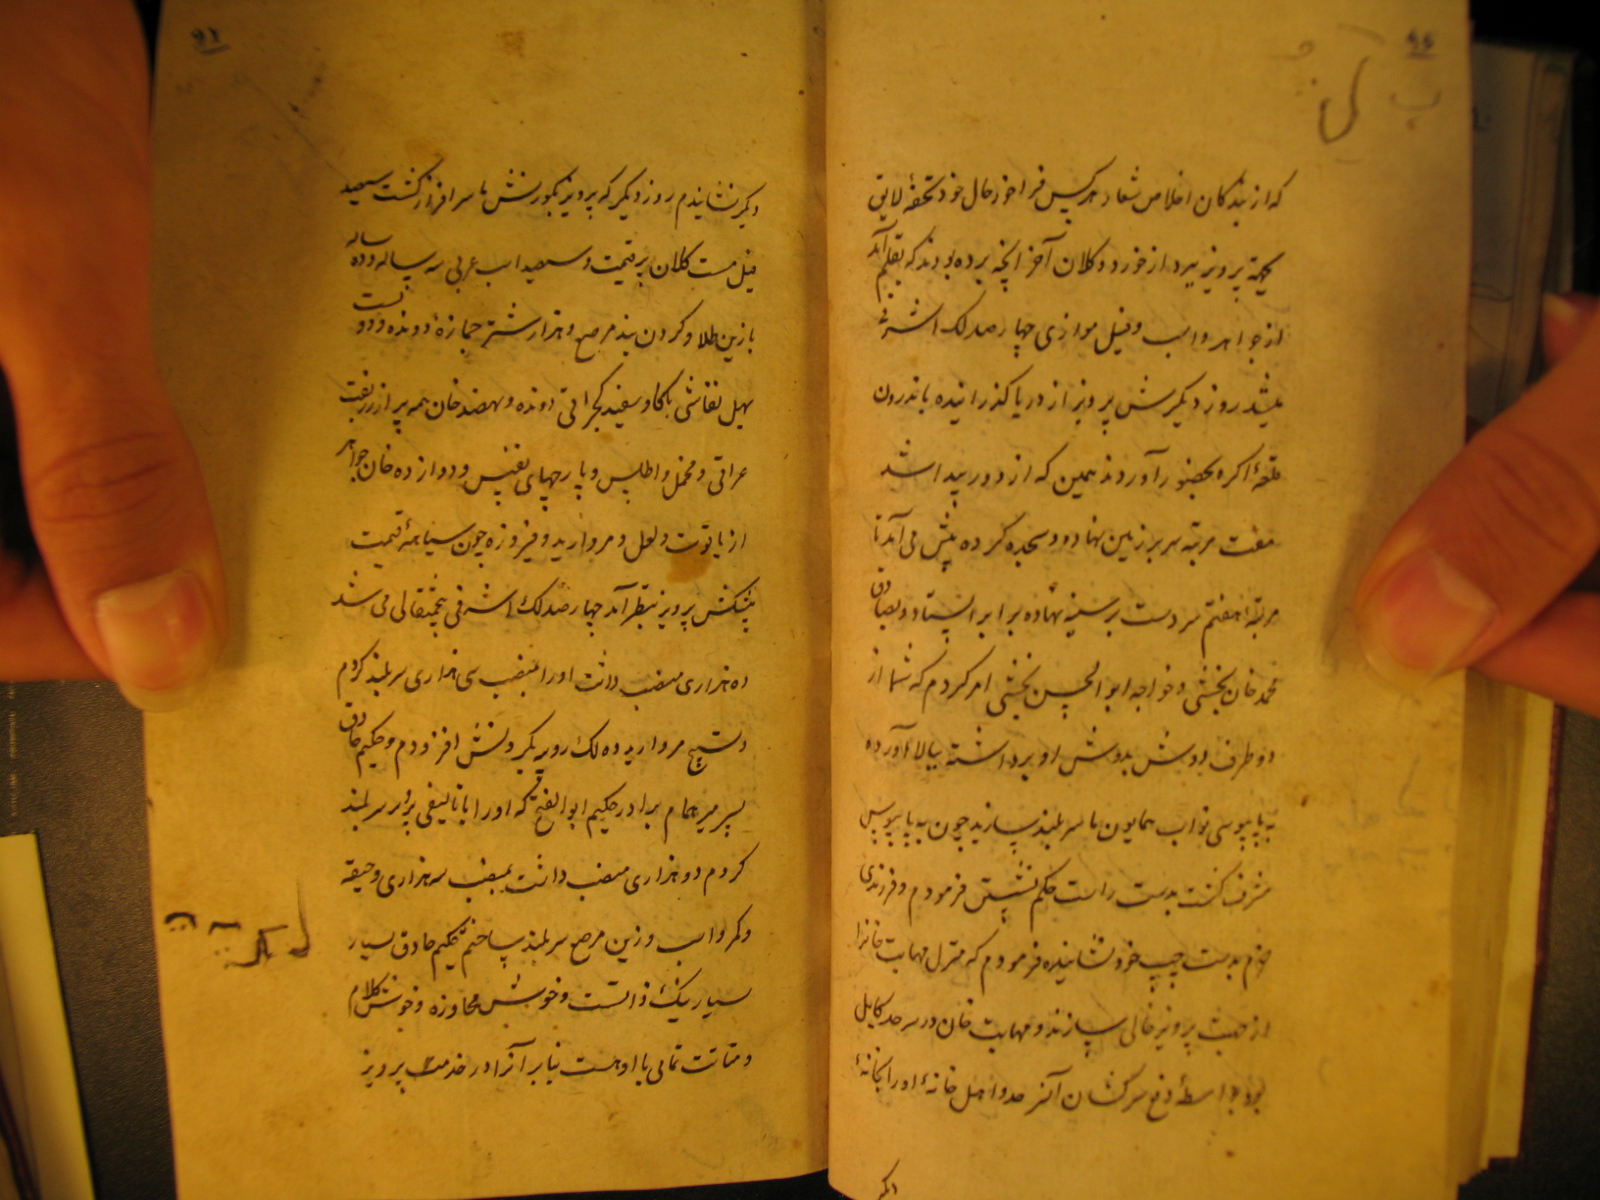 که از بندگان اخلاص شعار هرکس فراخور حال خود تحفهٔ لایق
بجهة پرویز ببرد از خورد و کلان آخر آنچه برده بودند که بقلم آمد
از جواهر و اسب و فیل موازی چهار صد لک اشرفی
میشد روز دیگرش پرویز از دریا گذرانیده باندرون
قلعهٔ اکره بحضور آوردند همین که از دور پیدا شد
هفت مرتبه سر بر زمین نهاد و سجده کرده پیش می آمد تا
مرتبهٔ هفتم سر دست بر سینه نهاده برابر ایستاد و بصادق
محمد خان بخشی و خواجه ابو الحسن بخشی امر کردم که شما از
دو طرف دوش بدوش او برداشته ببالا آورده
به پایبوسی نواب همایون ما سر بلند سازید چون به پایبوس
مشرف گشت بدست راست حکم نشستن فرمودم و فرزندی
خرم بدست چپ خود نشانیده فرمودم که منزل مهابت خانرا
از جهت پرویز خالی سازند و مهابت خان در سرحد کابل
بود بواسطهٔ دفع سرکشان آنسرحد و اهل خانهٔ او را بخانهٔ
دیگر
دیگر نشانیدم روز دیگر که پرویز بکورنش ما سرافراز گشت سیصد
فیل مست کلان پر قیمت و سیصد اسب عربی سه ساله و ده ساله
با زین طلا و کردن بند مرصع و هزار شتر جمازهٔ دونده و دویست
بهل نقاشی با گاو سفید گجراتی دونده و نهصد خان همه پر از زربفت
عراقی و مخمل و اطلس و پارچهای نفیس و دوازده خان جواهر
از یاقوت و لعل و مروارید و فیروزه چون سیاههٔ قیمت
پیشکش پرویز بنظر آمد چهار صد لک اشرفی پنجمثقالی می شد
ده هزاری منصب داشت او را بمنصب سی هزاری سر بلند کردم
و تسبیح مروارید ده لک روپیه بکردنش افزودم و حکیم حاذق
پسر میر همام برادر حکیم ابو الفتح که او را باتالیقی پرویز سر بلند
کردم دو هزاری منصب داشت بمنصب سه هزاری و جیقه
و کمر و اسب و زین مرصع سر بلند ساختم حکیم حاذق بسیار
بسیار نیک ذاتست و خوش محاوره و خوش کلام
و متانت تمامی با اوهست بنابر آنرا در خدمت پرویز